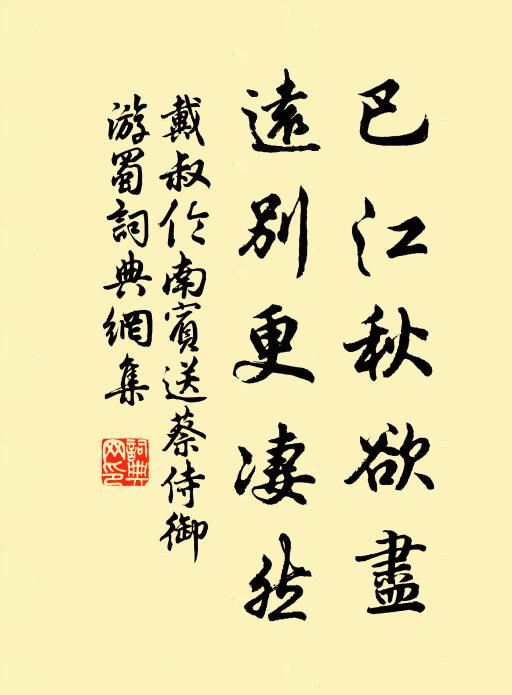 巴江秋欲盡
遠別更凄然
戴叔伦南賓送蔡侍御
游蜀詞典網集
詞典網印